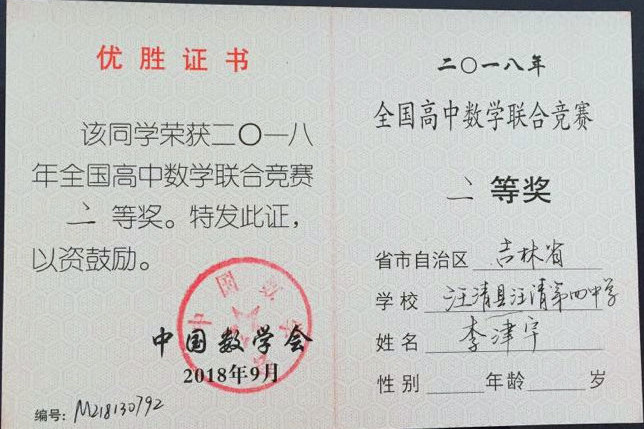 优胜证书
该同学荣获二〇一八
年全国高中数学联合竞赛
二等奖。特发此证，
以资鼓励。
中国数学会
中国数学会
2018年9月
编号：M218130792
二〇一八年
全国高中数学联合竞赛
二等奖
省市自治区 吉林省
学校 汪清县汪清第四中学
姓名 李津宇
性别 年龄 岁